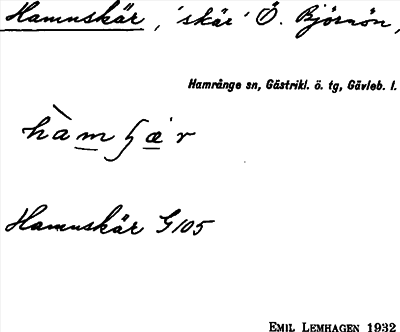 Hamnskär, 'skär' Ö. Björnön,
Hamrånge sn, Gästrikl. ö. tg, Gävleb. l.
hàmʃæ̀r
Hamnskär G105
EMIL LEMHAGEN 1932